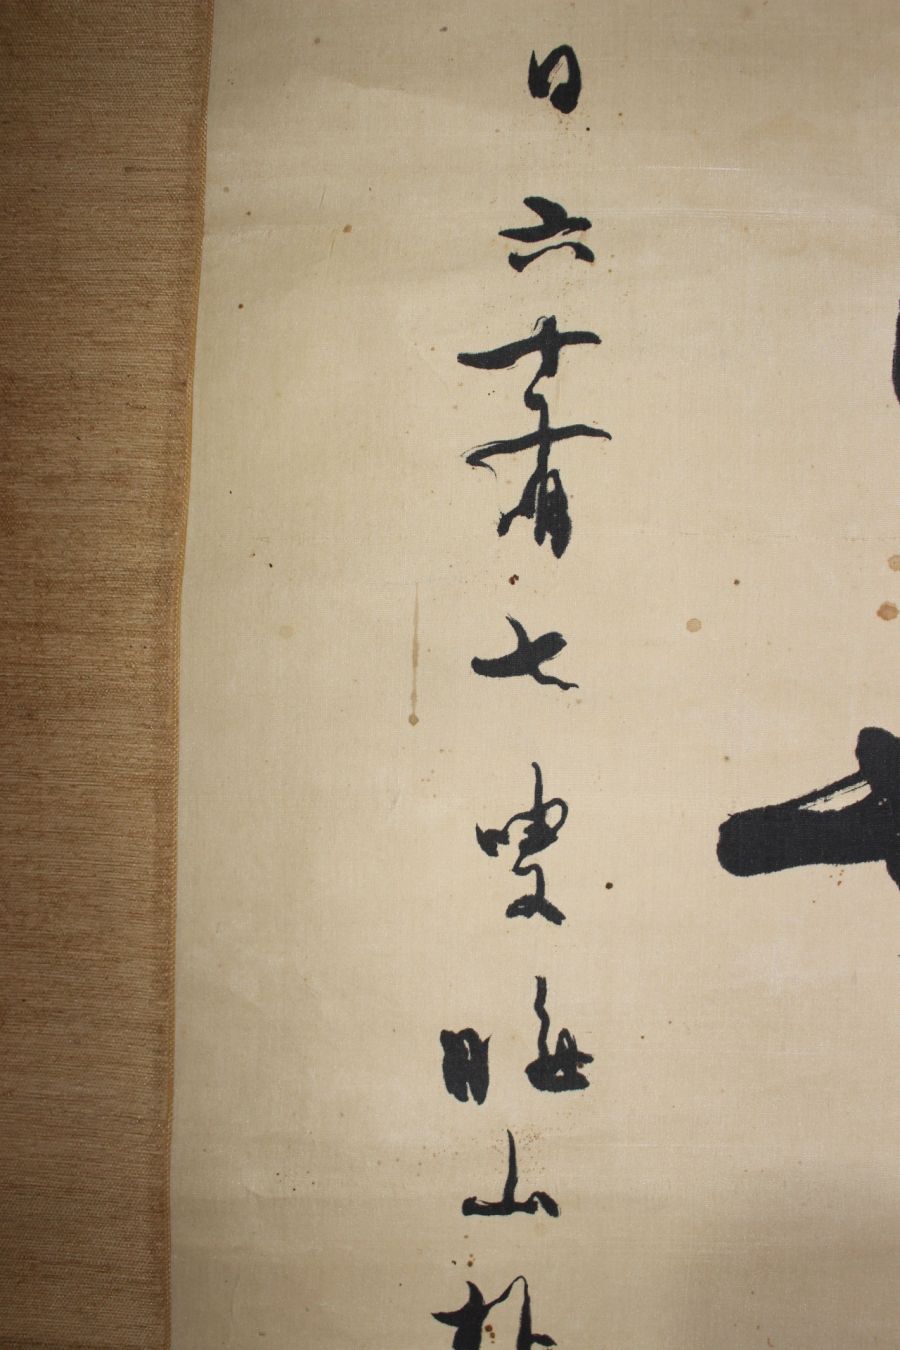 日六十有七叟晦山